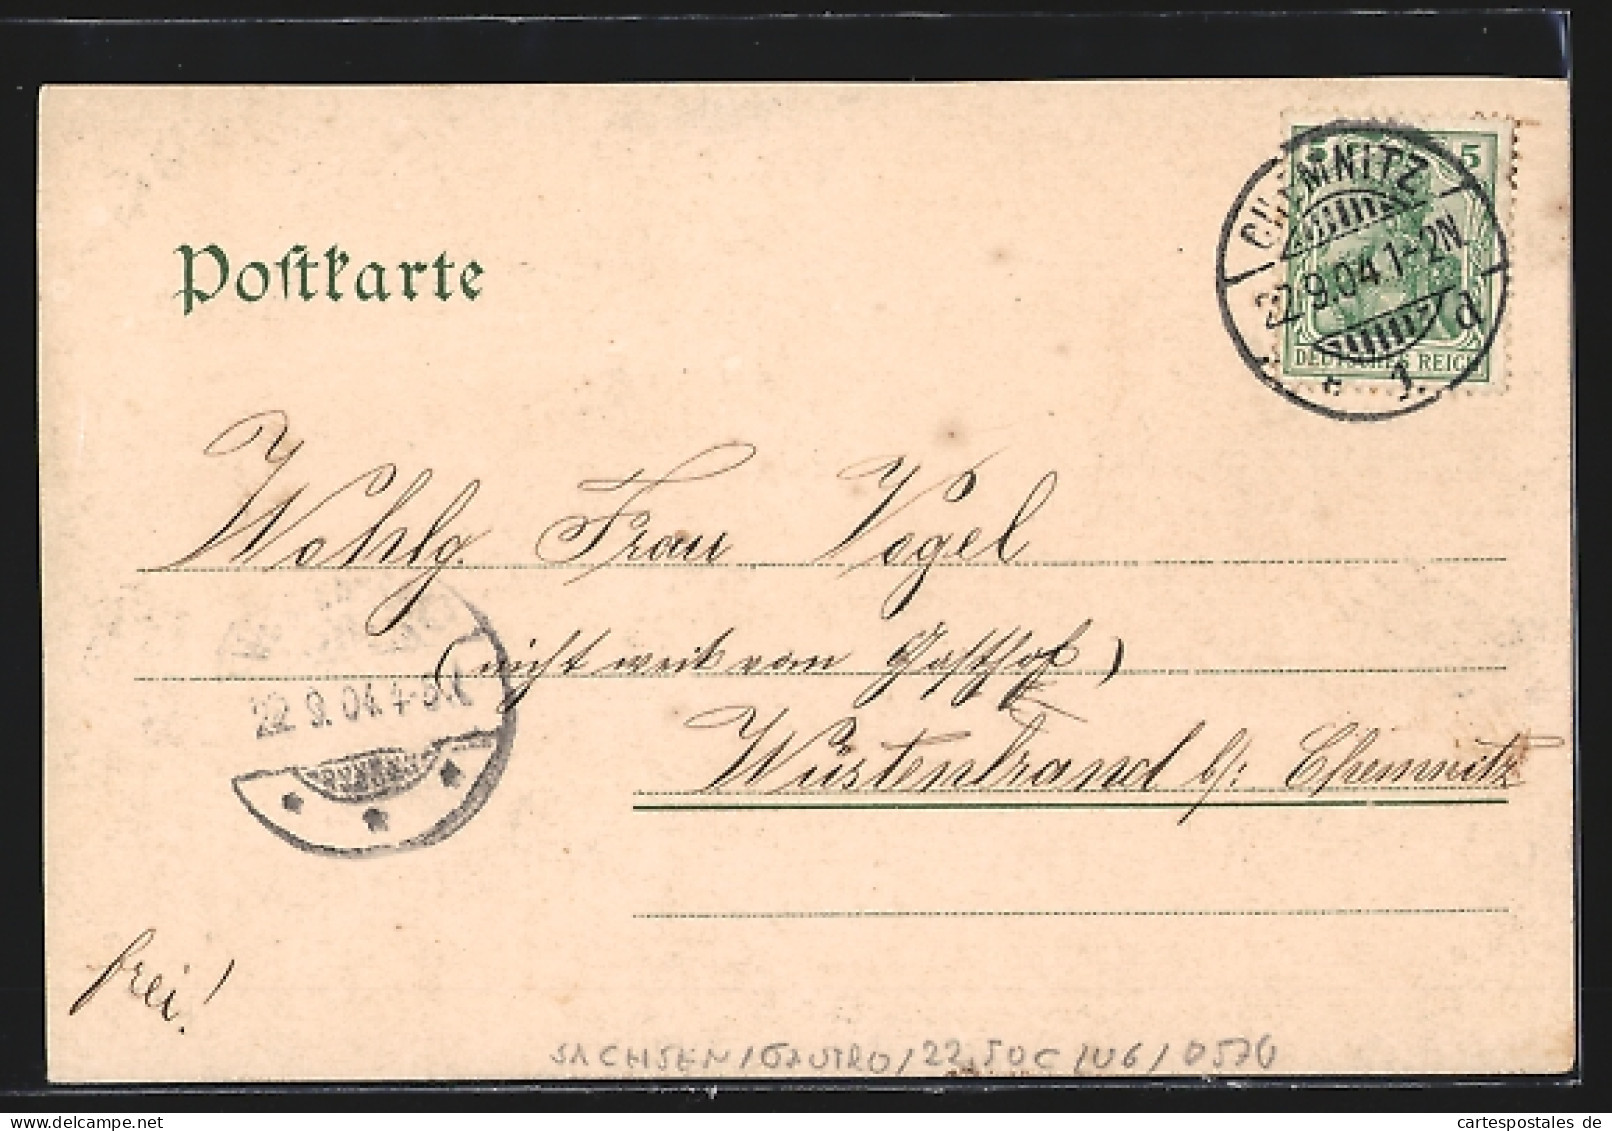 Postkarte
5
CHEMNITZ
22.9.04.1-2N
d
DEUTSCHES REICH
Wohlg. Frau Vogel
(nicht weit vom Gasthof)
22.9.04.4-5N.
Wüstenbrand b/ Chemnitz
frei!
SACHSEN/GASTRO/22.50C/U6/0570
cartespostales de